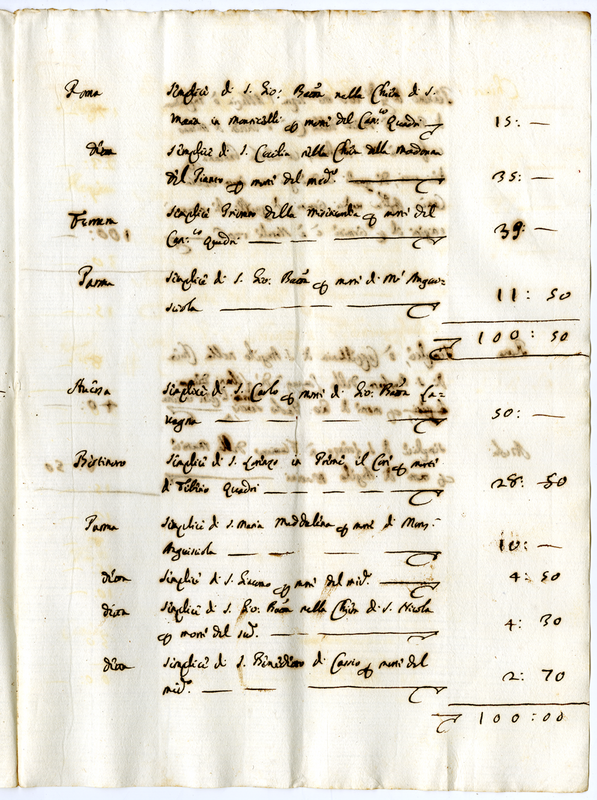 Roma Simplici di S. Gio: Batta nella Chiesa di S.
Maria in Monticelli p morte del Can.co Quadri 15: —
ditta Simplici di S. Cecilia nella Chiesa della Madonna
del Pianto p morte del med.o 35: —
Ferrara Simplici Priorato della Misericordia p morte del
Can.co Quadri 39: —
Parma Simplici di S. Gio: Batta p morte di M.r Anguis-
sciola 11: 50
100: 50
Ancona Simplici di S. Carlo p morte di Gio: Batta Ca=
vagna 50: —
Bertinoro Simplici di S. Lorenzo in p morte
di Tiberio Quadri 28: 50
Parma Simplici di S. Maria Maddalena p morte di Mons.r
Anguissiola 10: —
ditta Simplici di S. Giacomo p morte del med.o 4: 50
ditta Simplici di S. Gio: Batta nella Chiesa di S. Nicola
p morte del sud.o 4: 30
ditta Simplici di S. Benedetto di Cassio p morte del
med.o 2: 70
100: 00